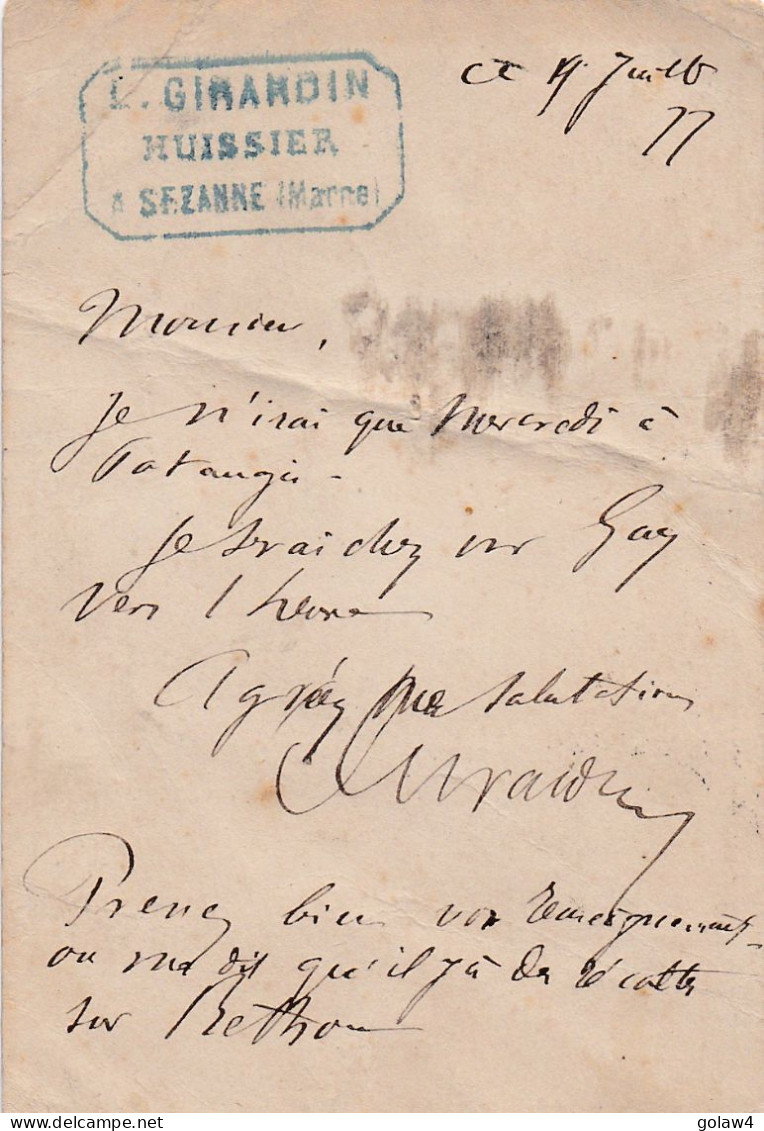 L. GIRARDIN
HUISSIER
A SEZANNE (Marne)
ce 19 Juillt
77
Monsieur,
Je n'irai que Mercredi à
Potangis -
Je serai chez mr Gay
vers 1 heure
Agréez mes salutations
Girardin
Prenez bien vos renseignements
on me dit qu'il y a des récoltes
sur Bethon
golaw4